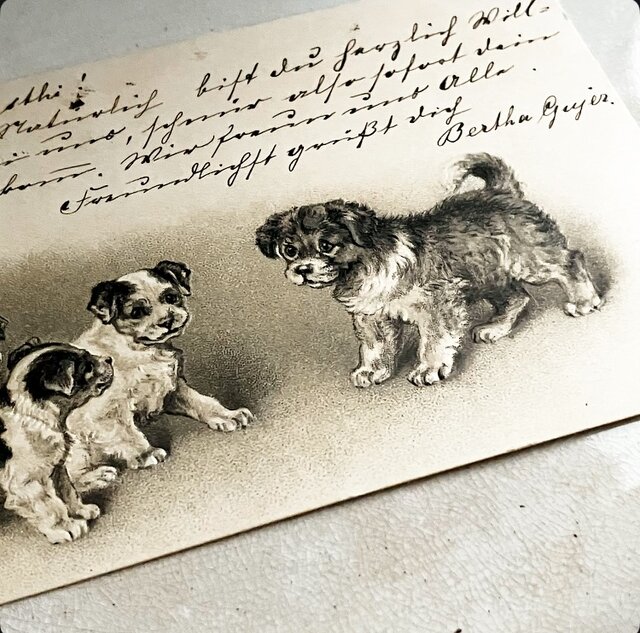 Natürlich bist du herzlich Will-
uns, schnür also sofort dein
Wir freun uns Alle.
Freundlichst grüßt dich
Bertha Gujer.